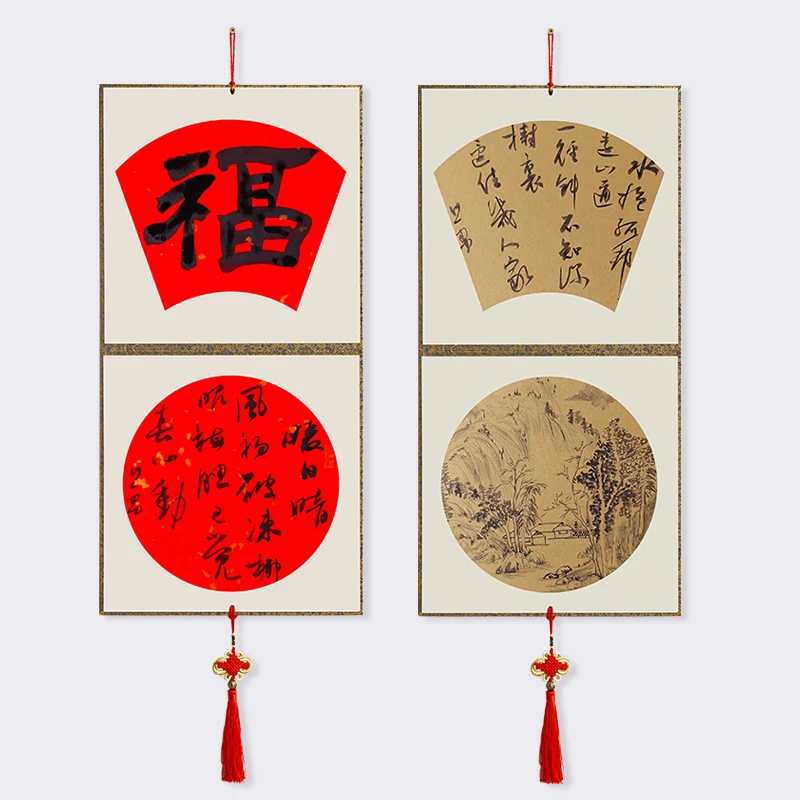 福
暖日晴
風初破凍柳
眼梅腮已覺
春心動
水抱孤村
遠山通
一徑斜不知深
樹裏
還住幾人家